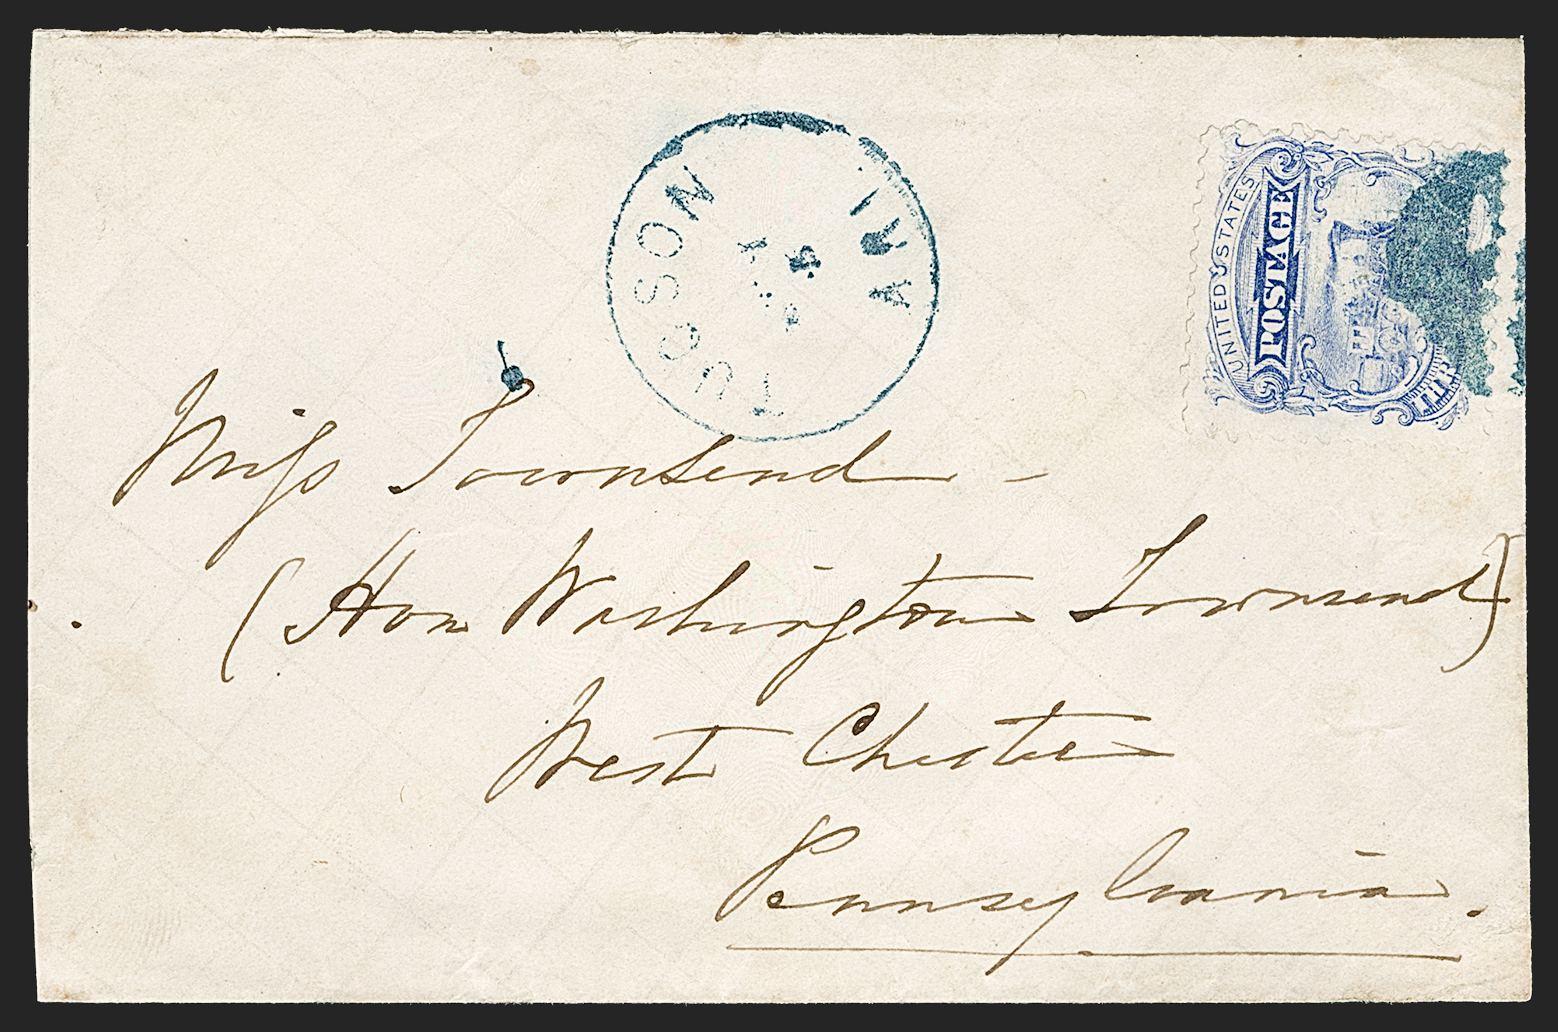 TUCSON ARI
UNITED STATES
POSTAGE
Miss Townsend -
(Hon Washington Townsend)
West Chester
Pennsylvania.